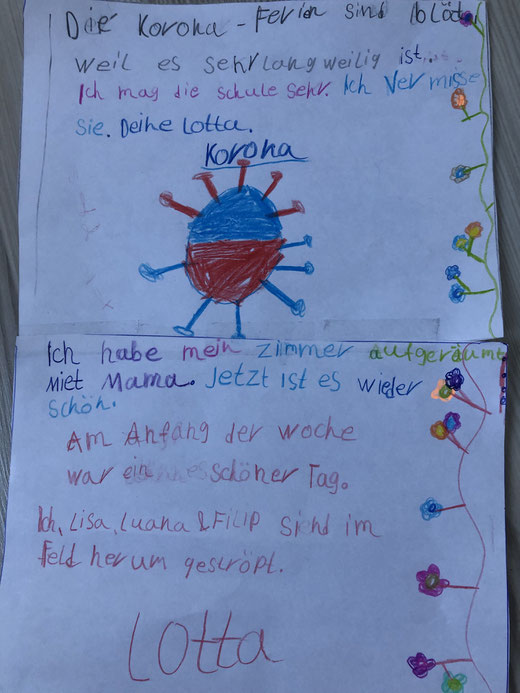 Die Korona-Ferien sind blöd,
weil es sehr langweilig ist.
Ich mag die schule sehr. Ich Vermisse
sie. Deine Lotta.
Korona
Ich habe mein zimmer aufgeräumt
miet Mama. Jetzt ist es wieder
schön.
Am Anfang der woche
war ein schöner Tag.
Ich, Lisa, Luana & Filip sind im
Feld herum geströpt.
Lotta